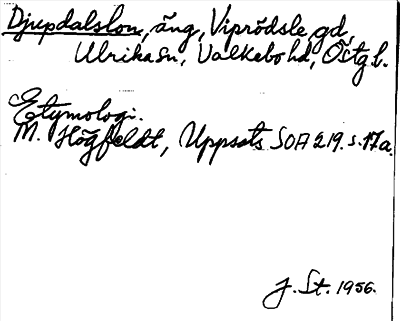 Djupdalslon, äng, Viprödsle gd,
Ulrikasn, Valkebo hd, Östg l.
Etymologi.
M. Högfeldt, Uppsats SOA 219. s. 17a.
J. St. 1956.